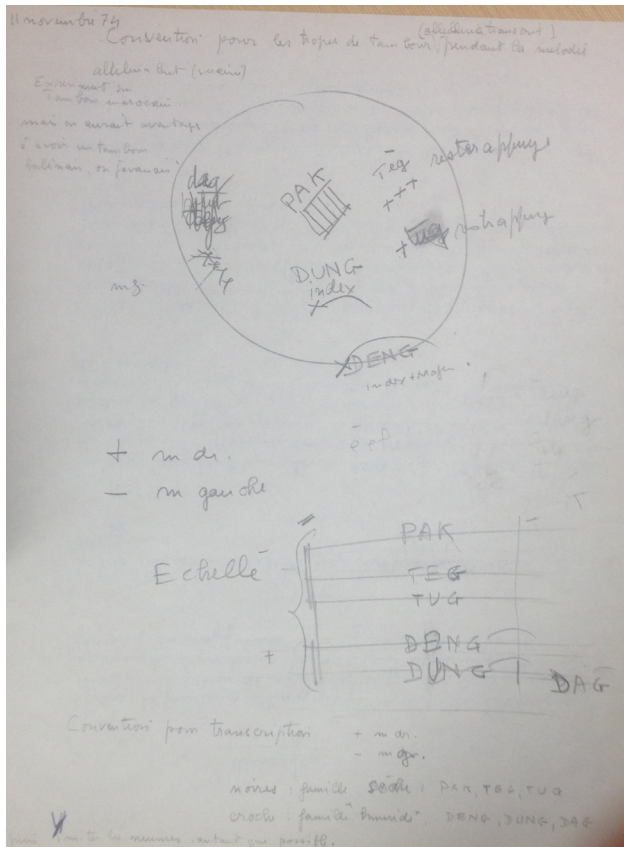 11 novembre 74
Convention pour les tropes de tambour, pendant la mélodie
Tambour marocain
mais on aurait avantage
à avoir un tambour
balinais, ou javanais
dag
PAK
Tēg rester appuyé
+++
+ rester appuyé
DUNG
index
mg
DENG
index + majeur.
+ m dr.
- m gauche
PAK
Echelle
TEG
TUG
+
DENG
DUNG
DAG
Convention pour transcription + m dr.
- m g.
noires : famille sèche : PAK, TEG, TUG
croche : famille humide : DENG, DUNG, DAG
les mesures autant que possible.